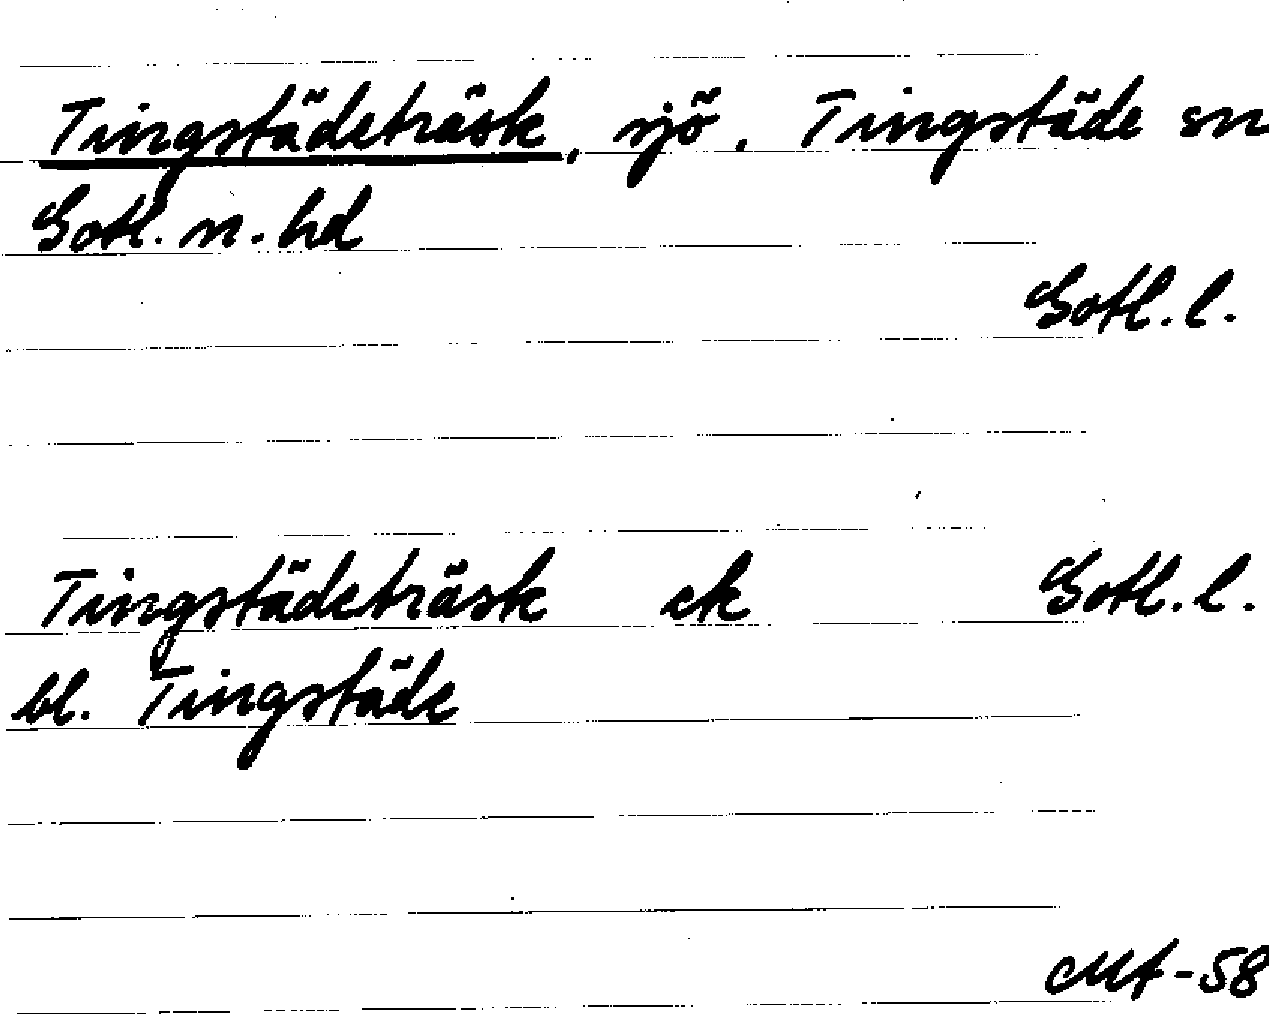 Tingstädeträsk, sjö. Tingstäde sn
Gotl. n. hd
Gotl. l.
Tingstädeträsk ek Gotl. l.
bl. Tingstäde
Mt-58